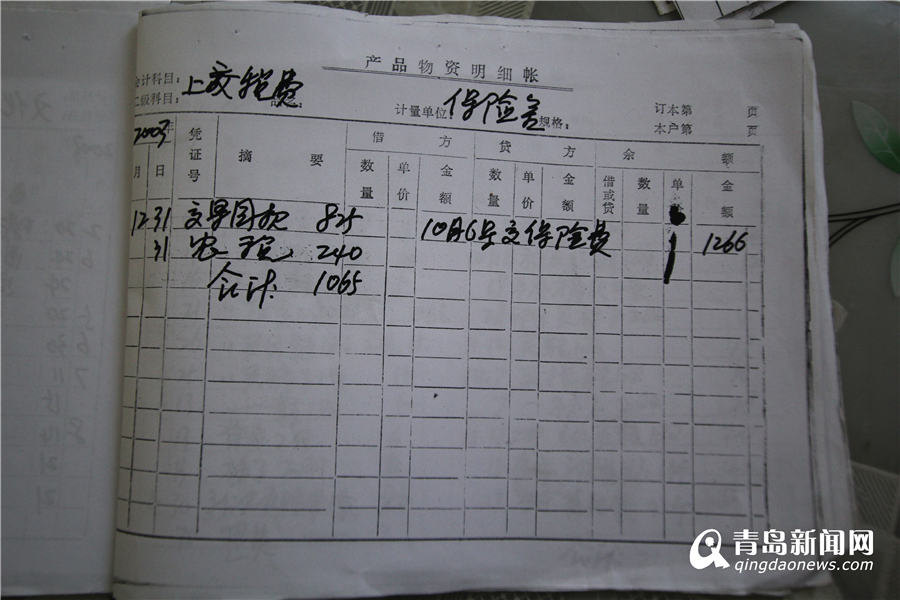 产品物资明细帐
会计科目：上交税费
二级科目：
计量单位 保险金 规格：
订本第 页
本户第 页
200 年 凭证号 摘要 借方 贷方 余额
月 日 数量 单价 金额 数量 单价 金额 借或贷 数量 单 金额
12 31 825 10月6号交保险费 1266
31 农税 240
合计 1065
青岛新闻网
qingdaonews.com